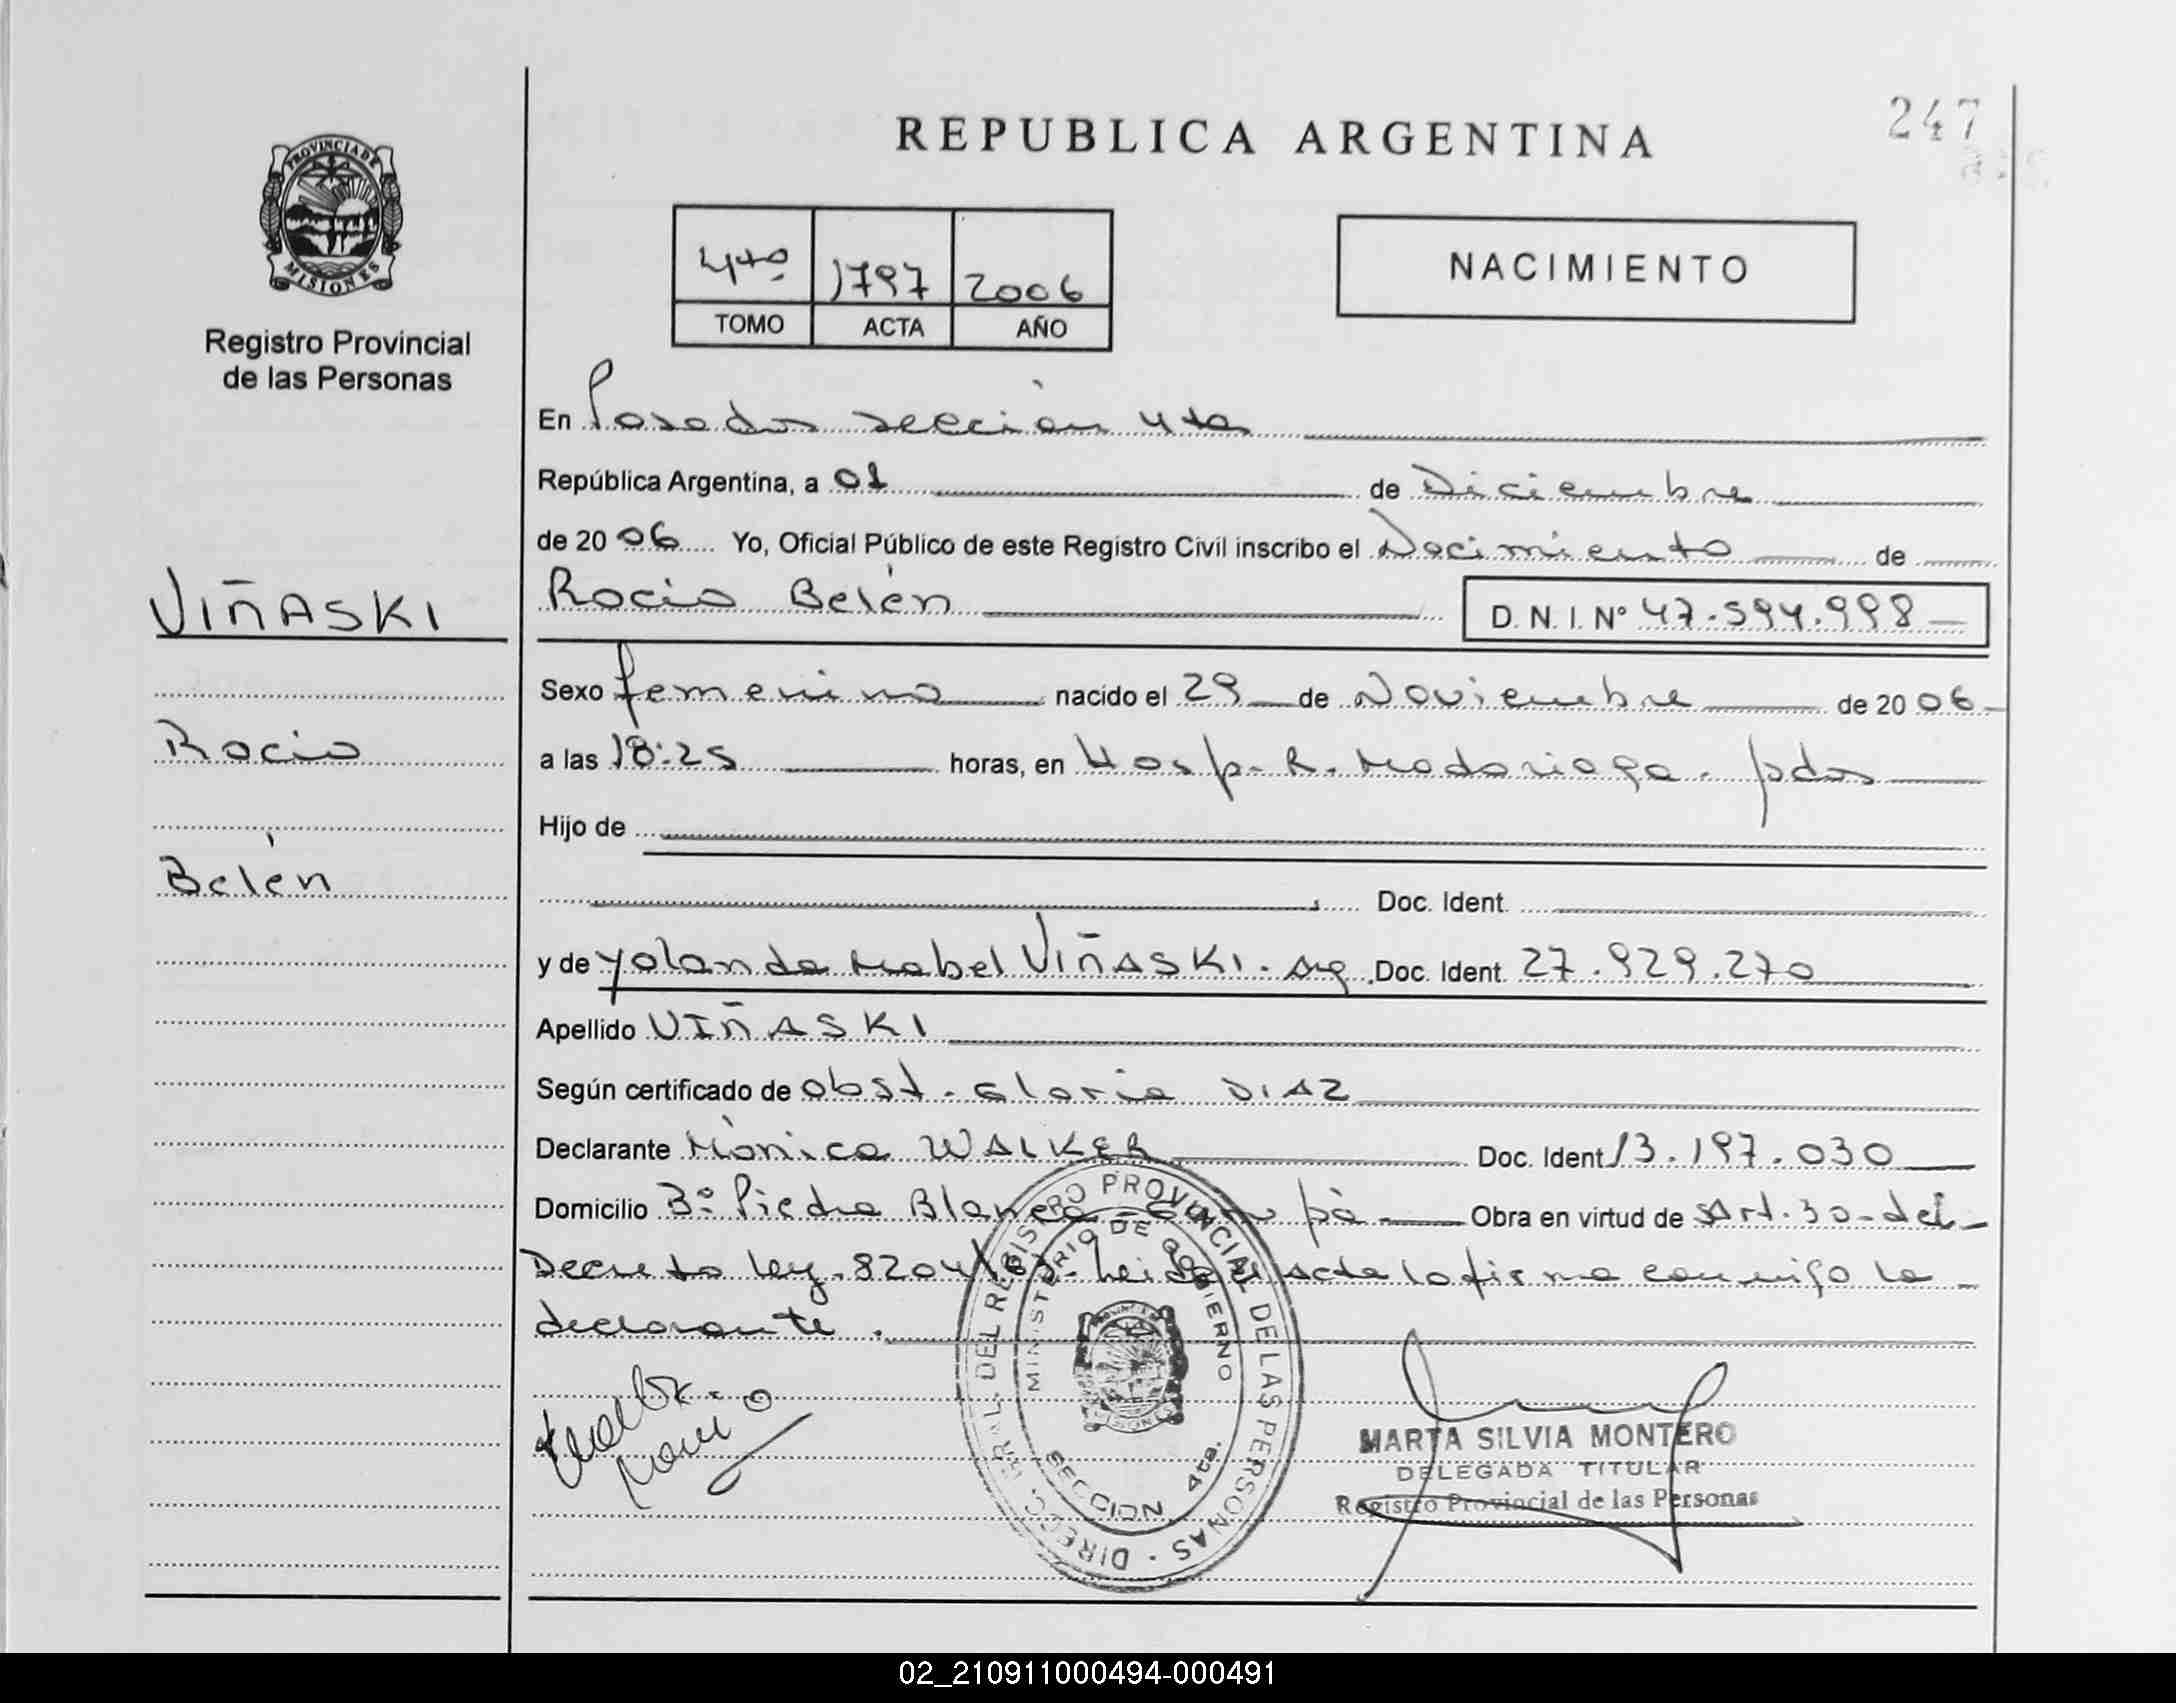 REPUBLICA ARGENTINA
247
PROVINCIA DE
MISIONES
Registro Provincial
de las Personas
4to 1797 2006
TOMO ACTA AÑO
NACIMIENTO
En Posadas sección 4ta
República Argentina, a 01 de Diciembre
de 20 06 Yo, Oficial Público de este Registro Civil inscribo el Nacimiento de
Rocío Belén D. N. I. Nº 47.594.998
VIÑASKI
Rocío
Belén
Sexo femenino nacido el 29 de Noviembre de 20 06
a las 18:25 horas, en Hosp. R. Madariaga. pdas
Hijo de
Doc. Ident.
y de Yolanda Mabel VIÑASKI. Arg. Doc. Ident. 27.929.270
Apellido VIÑASKI
Según certificado de Obst. Gloria DIAZ
Declarante Mónica WALKER Doc. Ident 13.197.030
Domicilio Bº Piedra Blanca - Obra en virtud de Art. 30 - del
Decreto Ley. 8204/63. Leida el Acta lo firma conmigo la
declarante.
DIRECC. GRAL. DEL REGISTRO PROVINCIAL DE LAS PERSONAS
MINISTERIO DE GOBIERNO
SECCION 4ta.
MARTA SILVIA MONTERO
DELEGADA TITULAR
Registro Provincial de las Personas
02_210911000494-000491